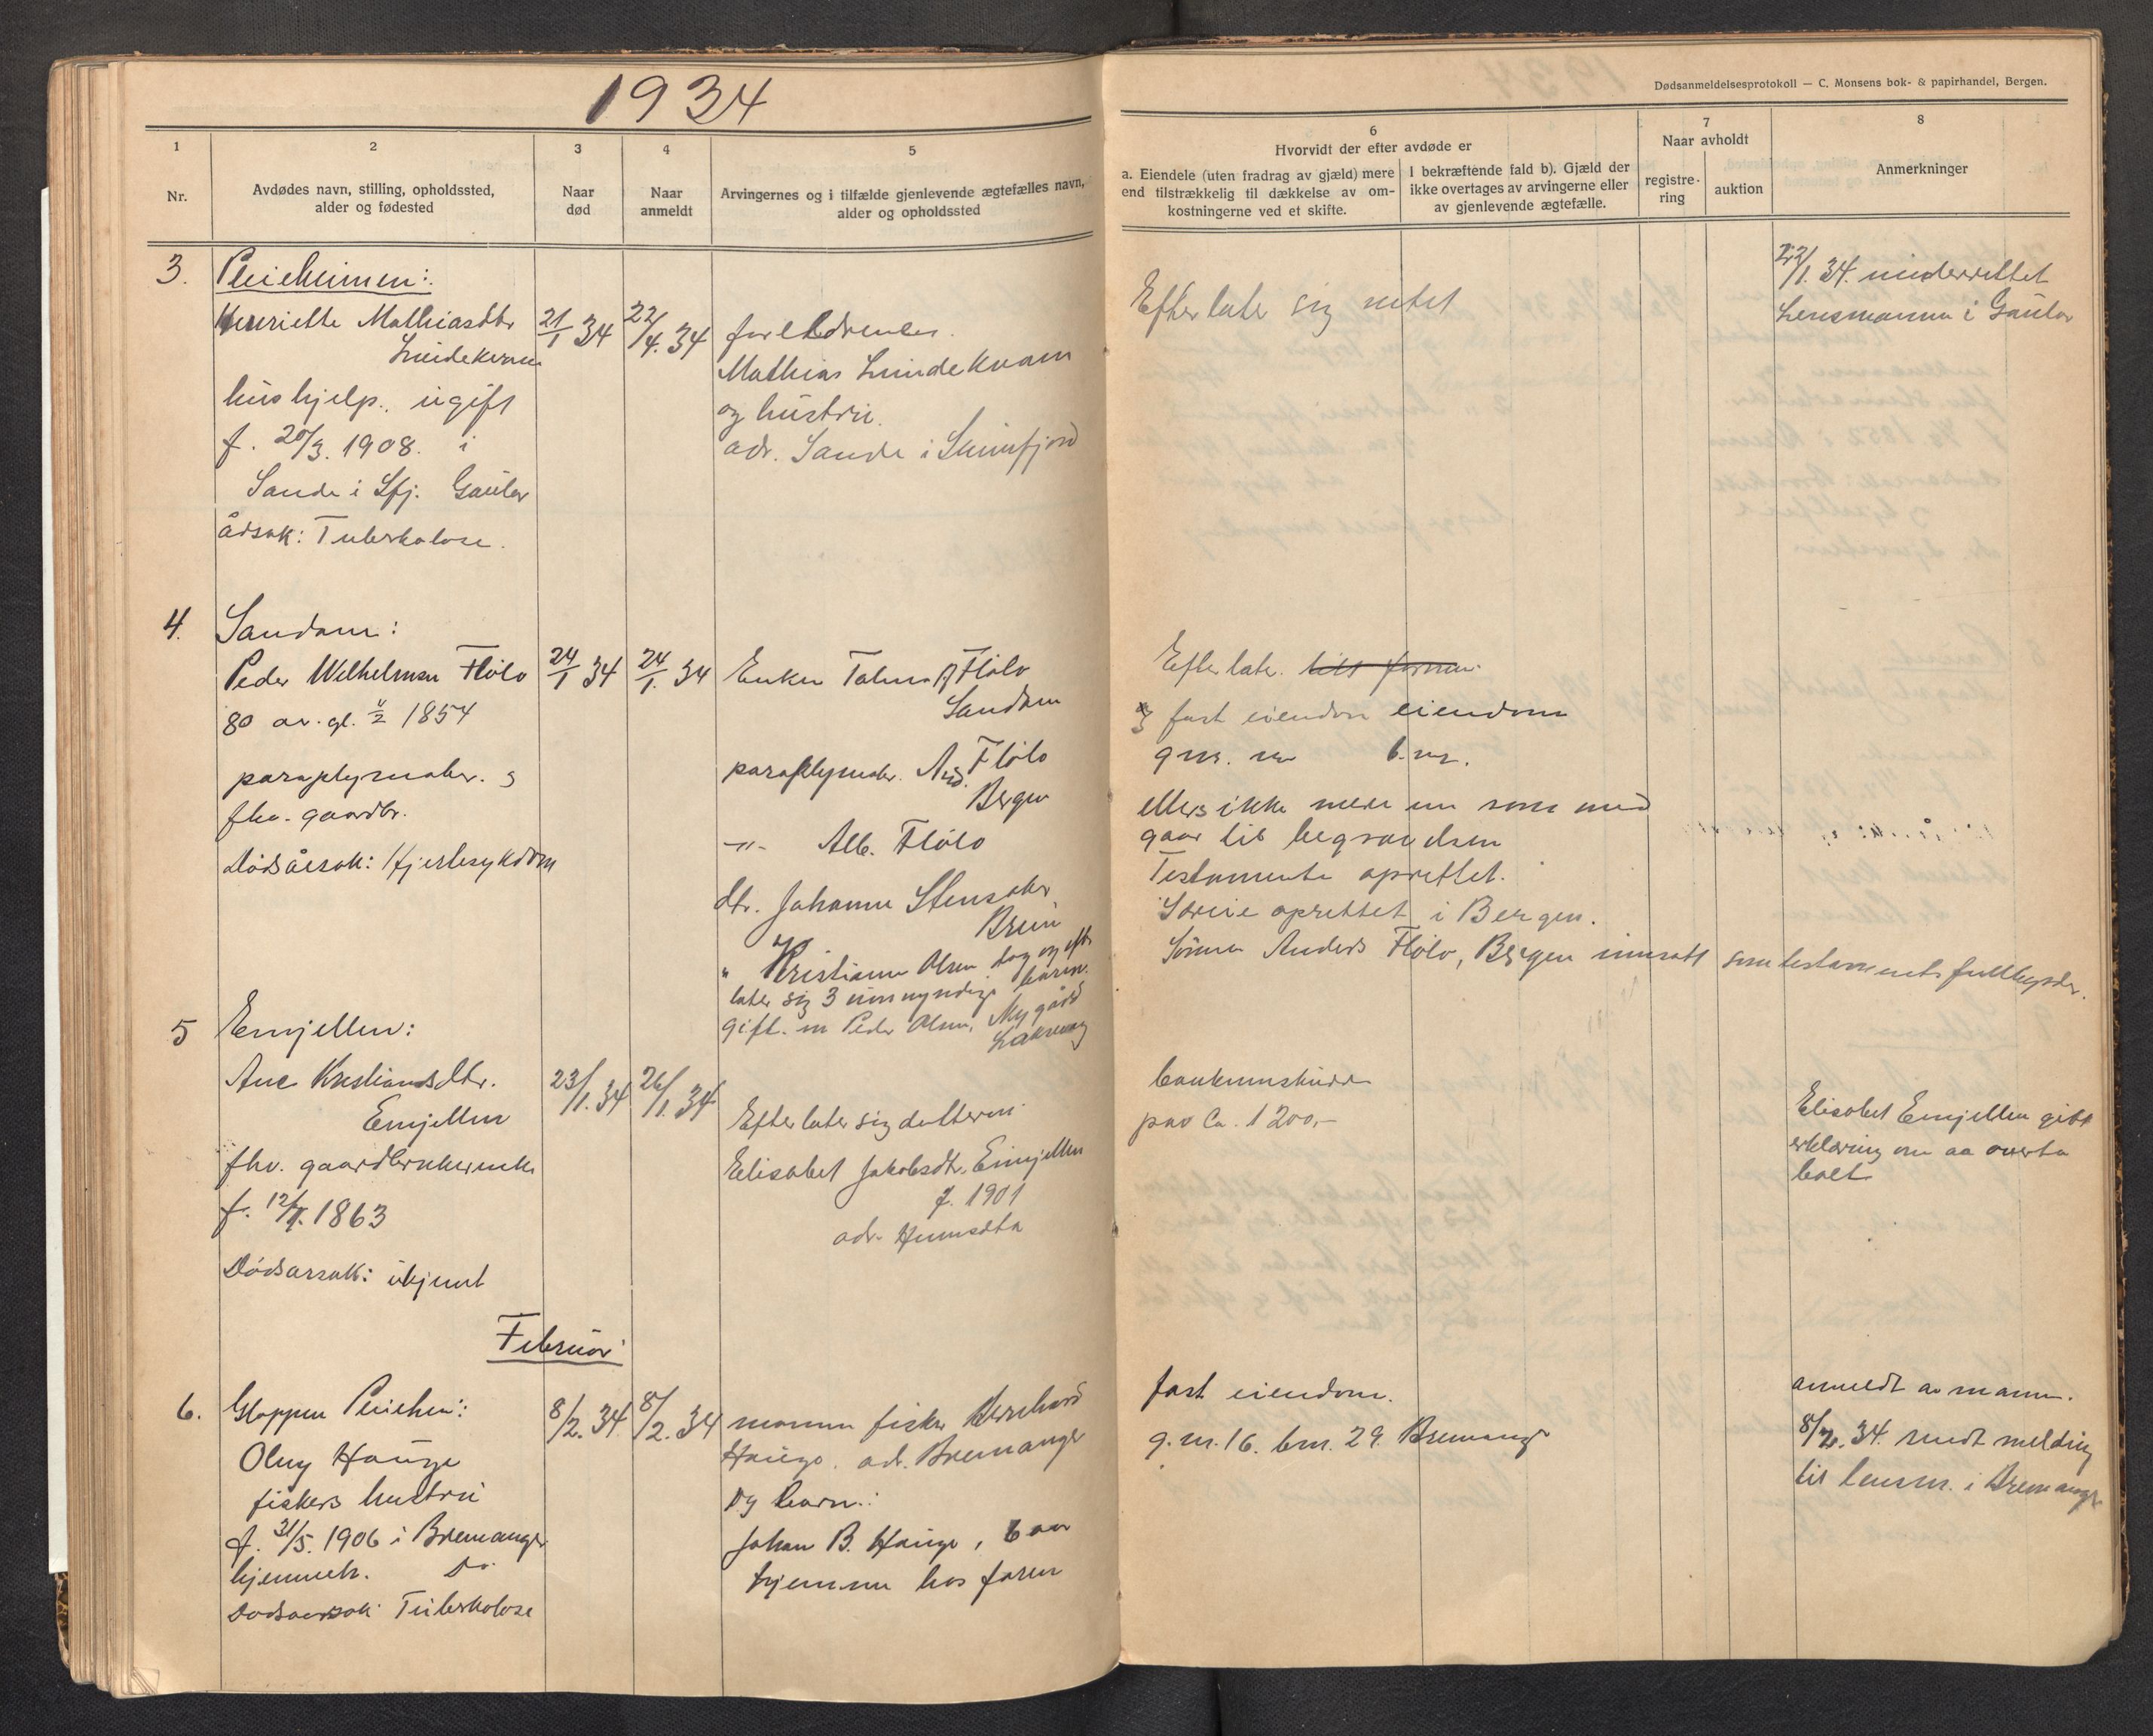 1934
Dødsanmeldelsesprotokoll — C. Monsens bok- & papirhandel, Bergen.
1
Nr.
2
Avdødes navn, stilling, opholdssted,
alder og fødested
3
Naar
død
4
Naar
anmeldt
5
Arvingernes og i tilfælde gjenlevende ægtefælles navn,
alder og opholdssted
6
Hvorvidt der efter avdøde er
a. Eiendele (uten fradrag av gjæld) mere
end tilstrækkelig til dækkelse av om-
kostningerne ved et skifte.
I bekræftende fald b). Gjæld der
ikke overtages av arvingerne eller
av gjenlevende ægtefælle.
7
Naar avholdt
registre-
ring
auktion
8
Anmerkninger
3.
Pleieheimen:
Henriette Mathiasdtr
Lundekvam
hushjelp, ugift
f. 20/3. 1908. i
Sande i Sfj. Gaular
årsak: Tuberkolose.
21/1 34
22/1. 34
foreldrenes
Mathias Lundekvam
og hustru.
adr. Sande i Sunnfjord
Efterlater sig intet
22/1. 34. underrettet
Lensmannen i Gaular
4.
Sandane:
Peder Wilhelmsen Flølo
80 aar gl. 1854
paraplymaker. og
fhv. gaardbr.
Dødsårsak: Hjertesykdom
24/1 34
24/1. 34
Enken Flølo
Sandane
paraplymaker. And. Flølo
Bergen
-"- Alb. Flølo
dtr. Johanne Stensaker
Breim
" Kristianne Olsen dog og efter
later sig 3 umyndige barn.
gift. m Peder Olsen, Nygård
Efterlate.
fast eiendom eiendom
gnr. b.nr.
ellers ikke mere enn som med
gaar til begravelsen
Testamente oprettet.
Særeie oprettet i Bergen.
Sønnen Anders Flølo, Bergen innsatt som testamentsfullbyrder.
5
Emjellen:
Ane Kristiansdtr.
Emjellen
fhv. gaardbrukerenke
f. 1863
Dødsarsak: ukjent
23/1. 34
26/1. 34
Efterlater sig datteren
Elisabet Jakobsdtr. Emjellen
f. 1901
adr.
bankinnskudd
paa ca. 1200,-
Elisabet Emjellen gitt
erklæring om aa overta
boet
Februar
6.
Gloppen Pleiehei:
Oluy Hauge
fiskers hustru
f. 31/5. 1906 i Bremanger
hjemmeh. Do
Dødsaarsak: Tuberkolose
8/2. 34
8/2. 34
mannen fisker Bernhard
Hauge. adr. Bremanger
og barn:
Johan B. Hauge, 6 aar
hjemme hos faren
fast eiendom.
g.nr. 16. bnr. 29. Bremanger
anmeldt av mannen.
8/2. 34. sendt melding
til lensm. i Bremanger